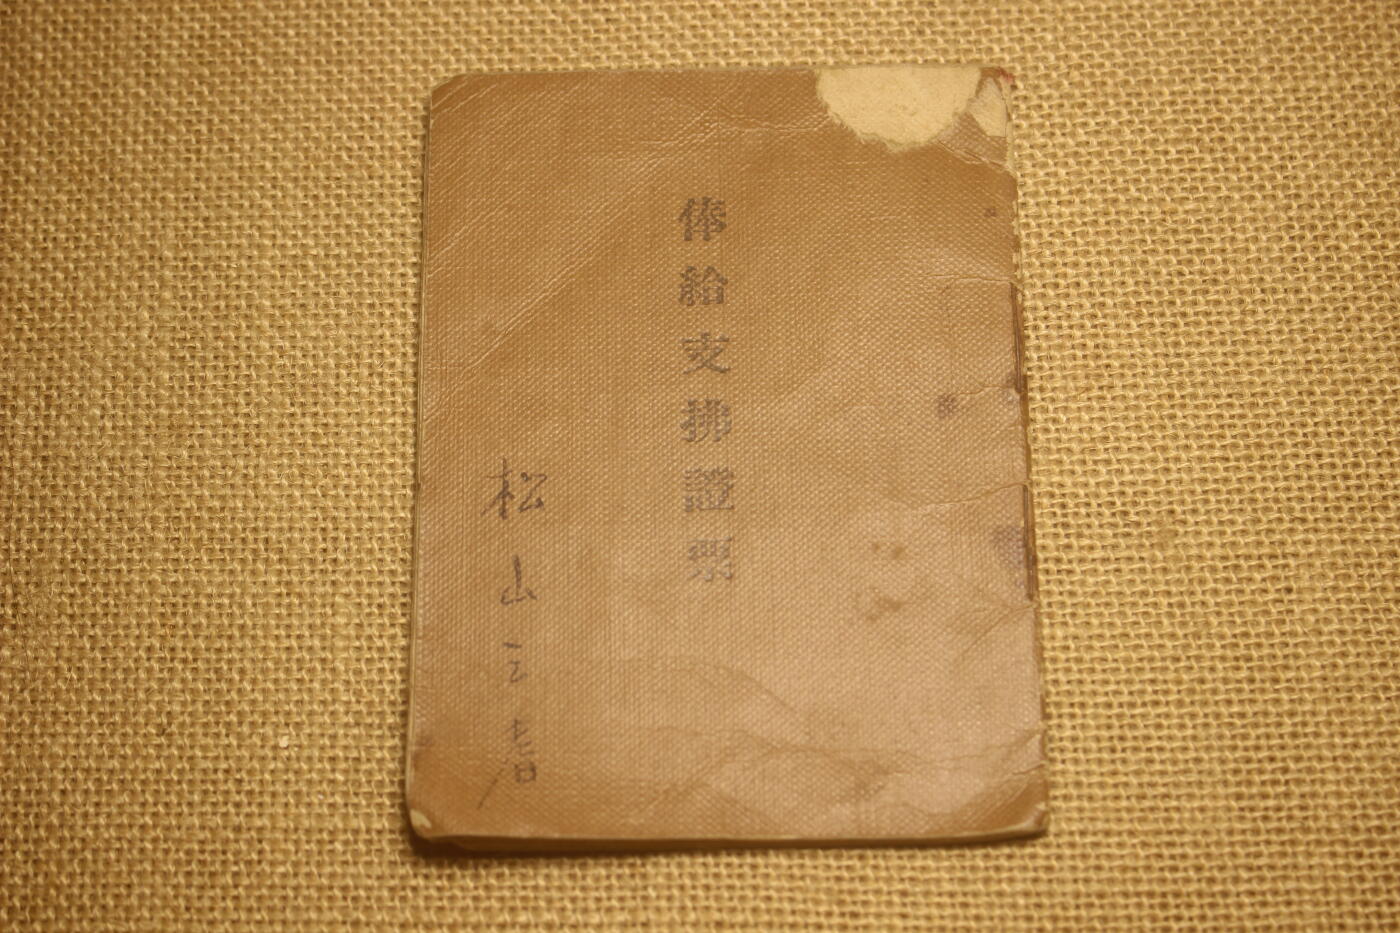 俸給支拂證票
松山